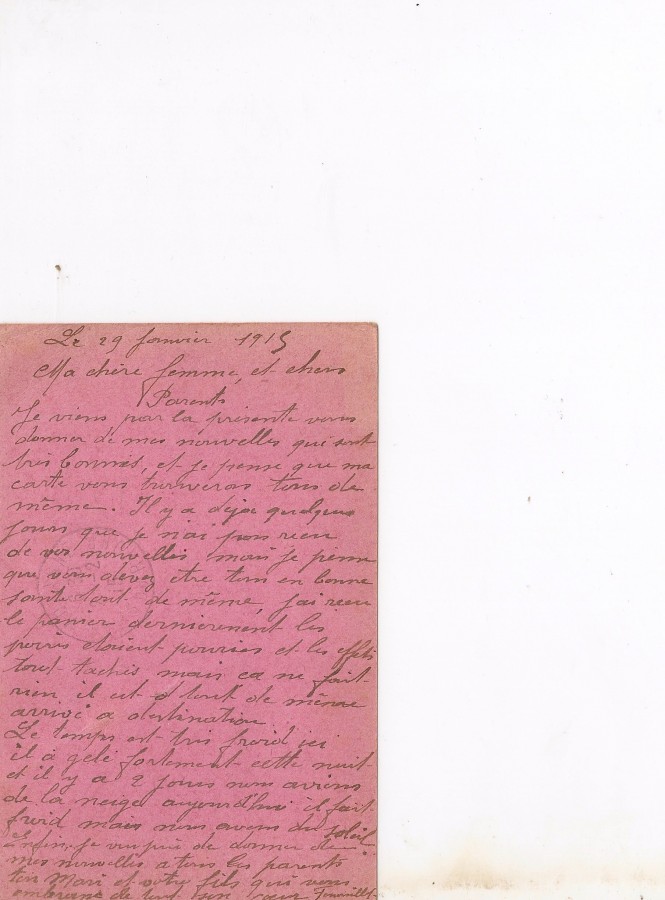 Le 29 Janvier 1915
Ma chère femme, et chers
Parents
Je viens par la présente vous
donner de mes nouvelles qui sont
très bonnes, et je pense que ma
carte vous trouveras tous de
même. Il y a deja quelques
jours que je n'ai pas recu
de vos nouvelles mais je pense
que vous devez etre tous en bonne
sante tout de même, j'ai recu
le panier dernierement les
poires etaient pourries et les effets
tout tachés mais ca ne fait
rien il est tout de même
arrivé a destination
Le temps est tris froid ici
il a gelé fortement cette nuit
et il y a 2 jours nous avions
de la neige aujourd'hui il fait
froid mais nous avons du soleil.
Enfin, je vous prie de donner de
mes nouvelles a tous les parents
ton Mari et votre fils qui vous
embrasse de tout son cœur